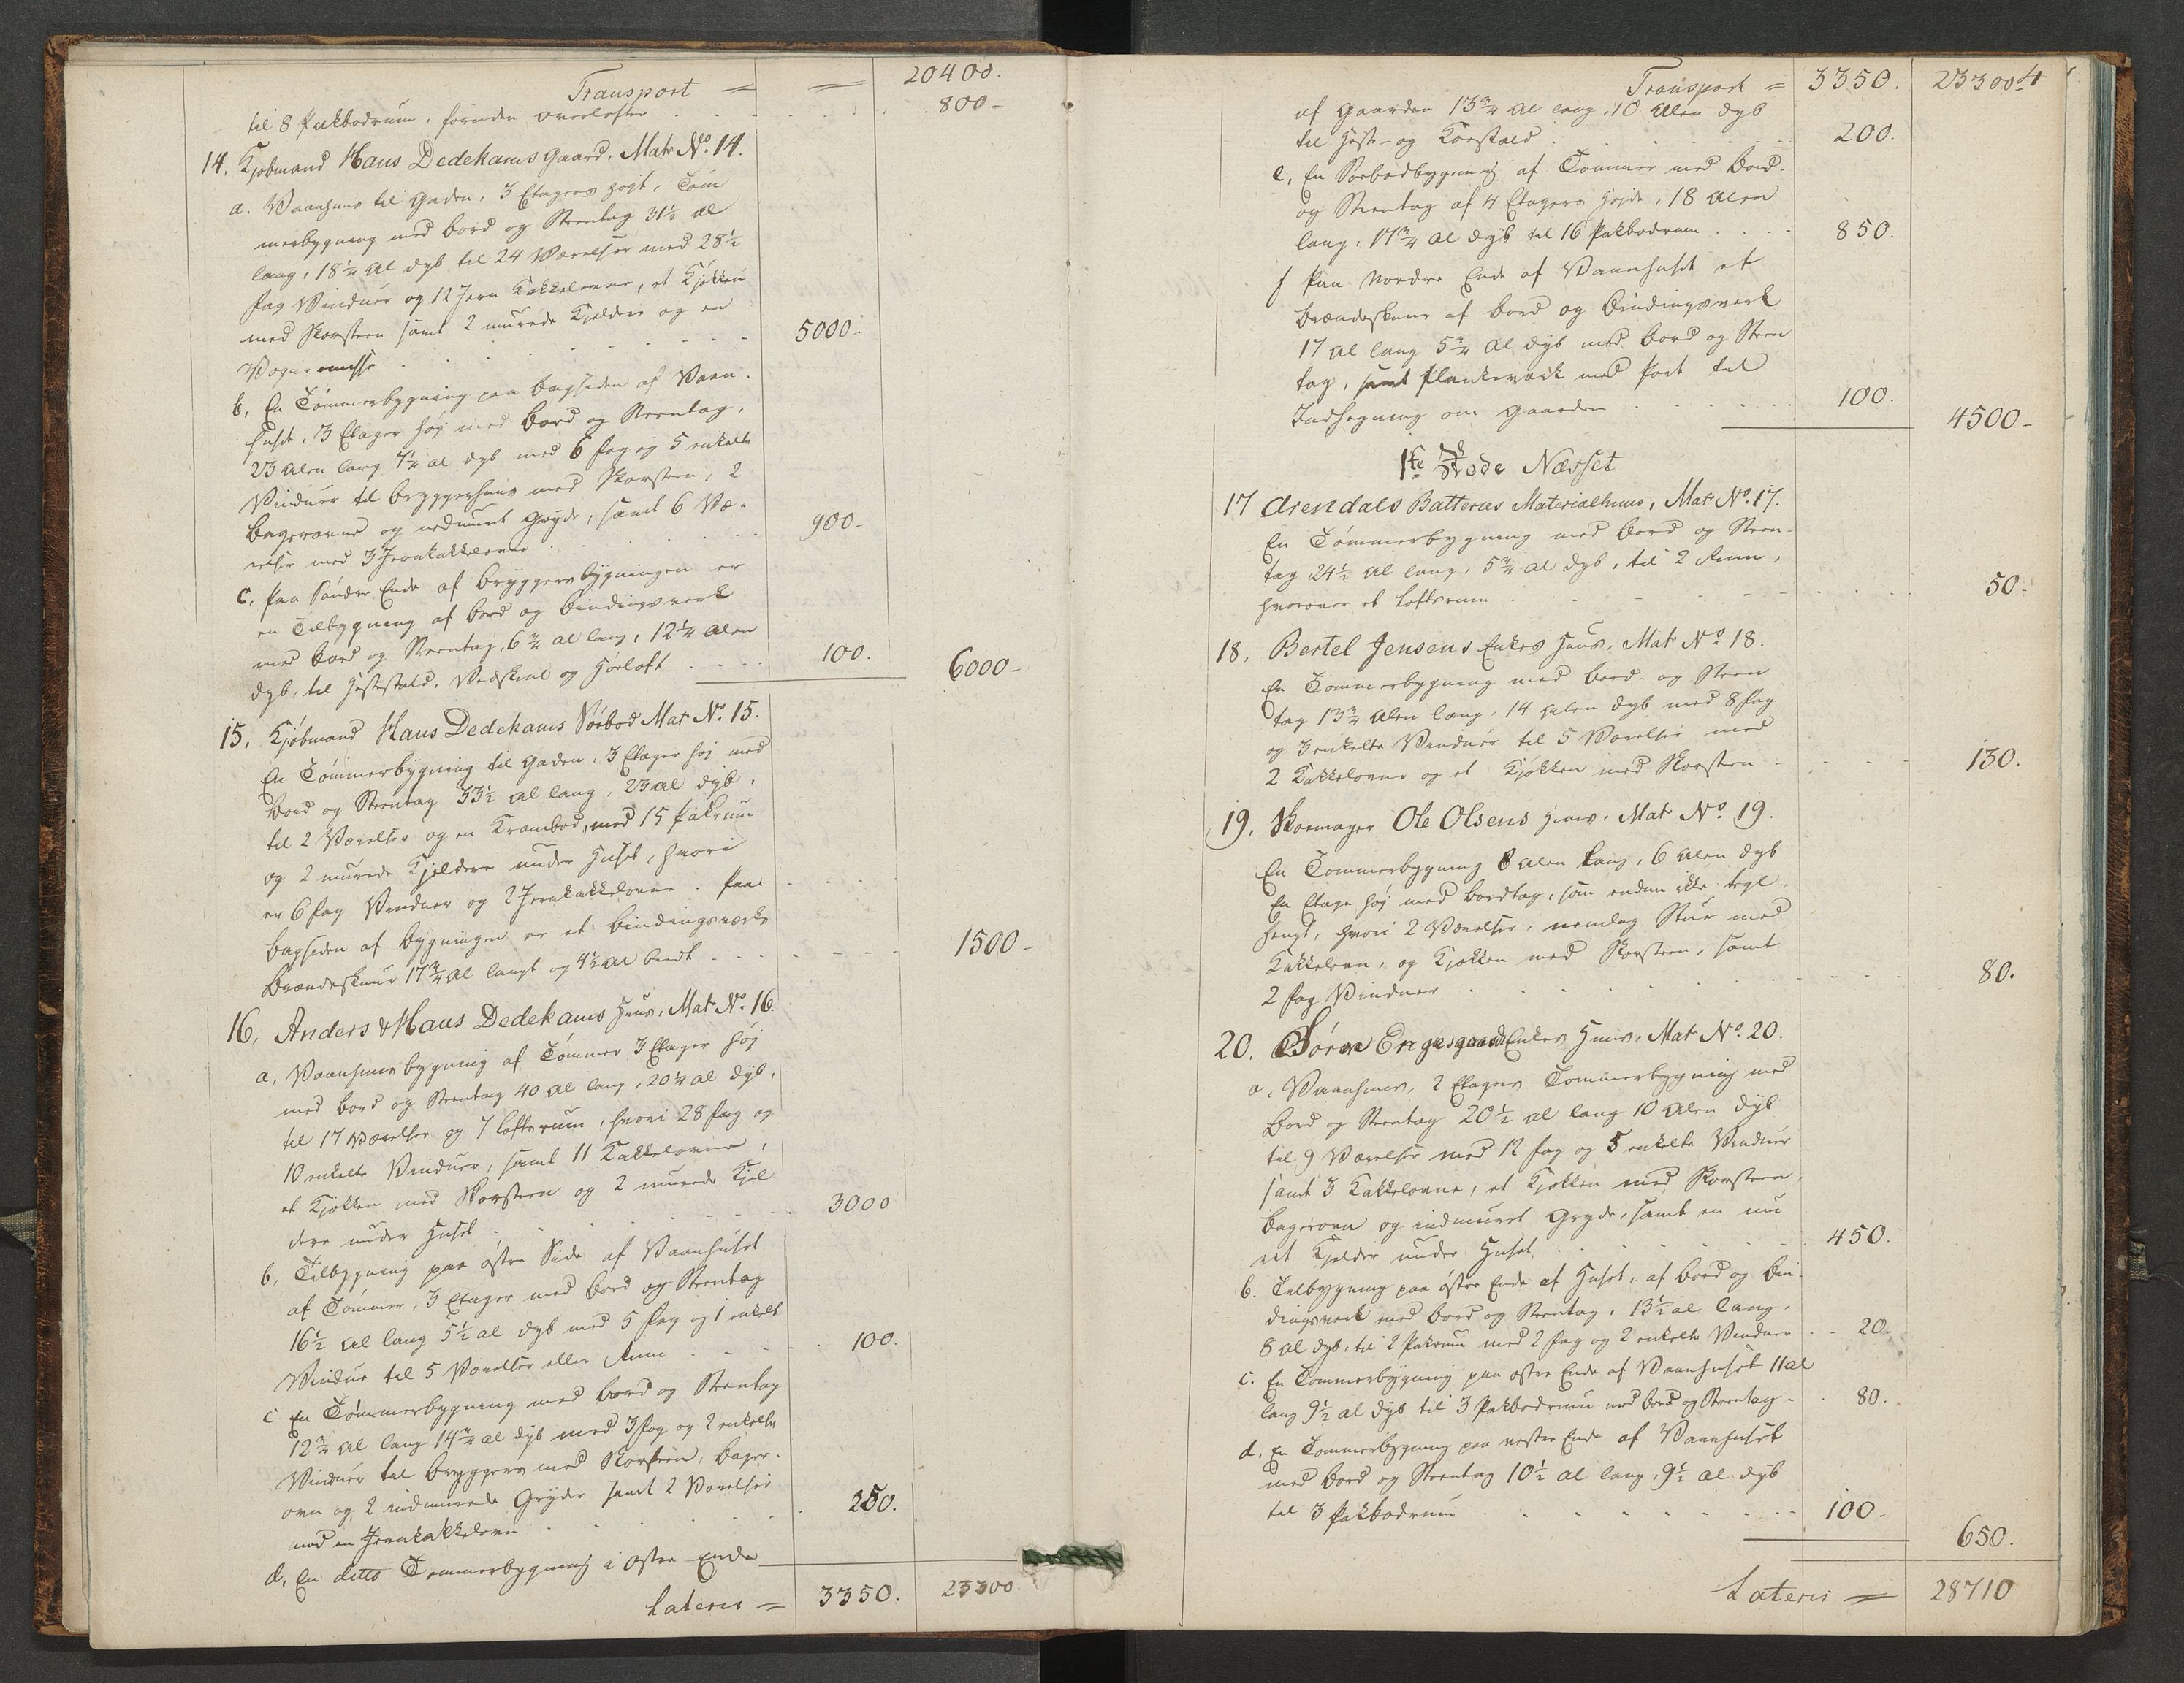 Transport = = 20400.
til 8 Pakbodrum, foruden overlofter . . . 800-
14. Kjøbmand Hans Dedekams Gaard, Matr No. 14.
a. Vaanhuus til Gaden, 3 Etagers høit, Tøm
merbygning med Bord og Steentag 31½ al
lang, 18¼ Al dyb til 24 Værelser med 28½
fag Vinduer og 12 Jern Kakkelovne, et Kjøkken
med Skorsteen samt 2 murede Kjeldere og en
Vognremisse . . . 5000.
b, En Tømmerbygning paa Bagsiden af Vaan-
huset, 3 Etager høj med Bord og Steentag,
23 Alen lang 7¼ al dyb med 6 fag og 5 enkelte
Vinduer til Bryggerhuus med Skorsteen, 2
Bagerovne og indmuret Gryde, samt 6 Væ-
relser med 3 Jernkakkelovne . . . 900-
c. Paa Søndre Ende af Bryggersbygningen er
en Tilbygning af Bord og Bindingsverk
med Bord og Steentag, 6¾ al lang, 12¼ Alen
dyb, til Hestestald, Vedskiul og Høeloft . . . 100. 6000-
15, Kjøbmand Hans Dedekams Søebod Mat No. 15.
En Tømmerbygning til Gaden, 3 Etager høj med
Bord og Steentag 33½ al lang, 23 al dyb,
til 2 Værelser og en Krambod, med 15 Pakrum
og 2 murede Kjeldere under Huset, hvori
er 6 fag Vinduer og 2 Jernkakkelovne. Paa
Bagsiden af Bygningen er et Bindingsverks
Brændeskuur 17¾ al langt og 4½ al bredt . . . 1500-
16, Anders & Hans Dedekams Huus, Mat No. 16.
a, Vaanhuusbygning af Tømmer 3 Etager høj
med Bord og Steentag 40 al lang, 20¼ al dyb,
til 17 Værelser og 7 loftsrum, hvori 28 fag og
10 enkelte Vinduer, samt 11 Kakkelovne,
et Kjøkken med Skorsteen og 2 murede Kjel
dere under Huset . . . 3000
b, Tilbygning paa østre Side af Vaanhuset
af Tømmer, 3 Etager med Bord og Steentag
16½ al lang 5½ al dyb med 5 fag og 1 enkelt
Vindue til 5 Værelser eller Rum . . . 100.
c En Tømmerbygning med Bord og Steentag
12¾ al lang 14¾ al dyb med 3 fag og 2 enkelte
Vinduer til Bryggers med Skorsteen, Bager-
ovn og 2 indmurede Gryder samt 2 Værelser
med en Jernkakkelovn . . . 250.
d, En ditto Tømmerbygning i østre Ende
Lateris = 3350. 23300
Transport = 3350. 23300
af Gaarden 13¾ Al lang, 10 Alen dyb
til Heste- og Koestald . . . 200.
e, En Søebodbygning af Tømmer med Bord-
og Steentag af 4 Etagers Højde, 18 Alen
lang, 17¾ Al dyb til 16 Pakbodrum . . . 850.
f Paa Nordre Ende af Vaanhuset et
Brændeskuur af Bord og Bindingsverk
17 al lang 5¾ Al dyb med Bord og Steen
tag, samt Plankeverk med Port til
Indhegning om Gaarden . . . 100. 4500-
1te Rode Næsset
17 Arendals Batteries Materialhuus, Mat No. 17.
En Tømmerbygning med Bord og Steen-
tag 24½ al lang, 5¾ al dyb, til 2 Rum,
hvorover et Loftsrum . . . 50.
18, Bertel Jensens Enkes Huus, Mat No 18.
En Tømmerbygning med Bord- og Steen
tag 13¾ Alen lang, 14 Alen dyb med 8 fag
og 3 enkelte Vinduer til 5 Værelser med
2 Kakkelovne og et Kjøkken med Skorsteen . . . 130.
19, Skomager Ole Olsens Huus, Mat No 19.
En Tømmerbygning 8 Alen lang, 6 Alen dyb
En Etage høj med Bordtag, som endnu ikke tegl-
hengt, hvori 2 Værelser, nemlig Stue med
Kakkelovn, og Kjøkken med Skorsteen, samt
2 fag Vinduer . . . 80.
20. Søren Engesgaards Enkes Huus, Mat No. 20.
a, Vaanhuus, 2 Etages Tømmerbygning med
Bord og Steentag 20½ al lang 10 Alen dyb
til 9 Værelser med 12 fag og 5 enkelte Vinduer
samt 3 Kakkelovne, et Kjøkken med Skorsteen,
Bagerovn og indmuret Gryde, samt en mu
ret Kjelder under Huset . . . 450.
b. Tilbygning paa østre Ende af Huset, af Bord og Bin-
dingsverk med Bord og Steentag, 13½ al lang,
8 al dyb, til 2 Pakrum med 2 fag og 2 enkelte Vinduer . . 20.
c. En Tømmerbygning paa østre Ende af Vaanhuset 11 al
lang 9½ al dyb til 3 Pakbodrum med Bord og Steentag- . 80.
d. En Tømmerbygning paa vestre Ende af Vaanhuset
med Bord og Steentag 10½ al lang, 9½ al dyb
til 3 Pakbodrum . . . 100. 650.
Lateris = 28710